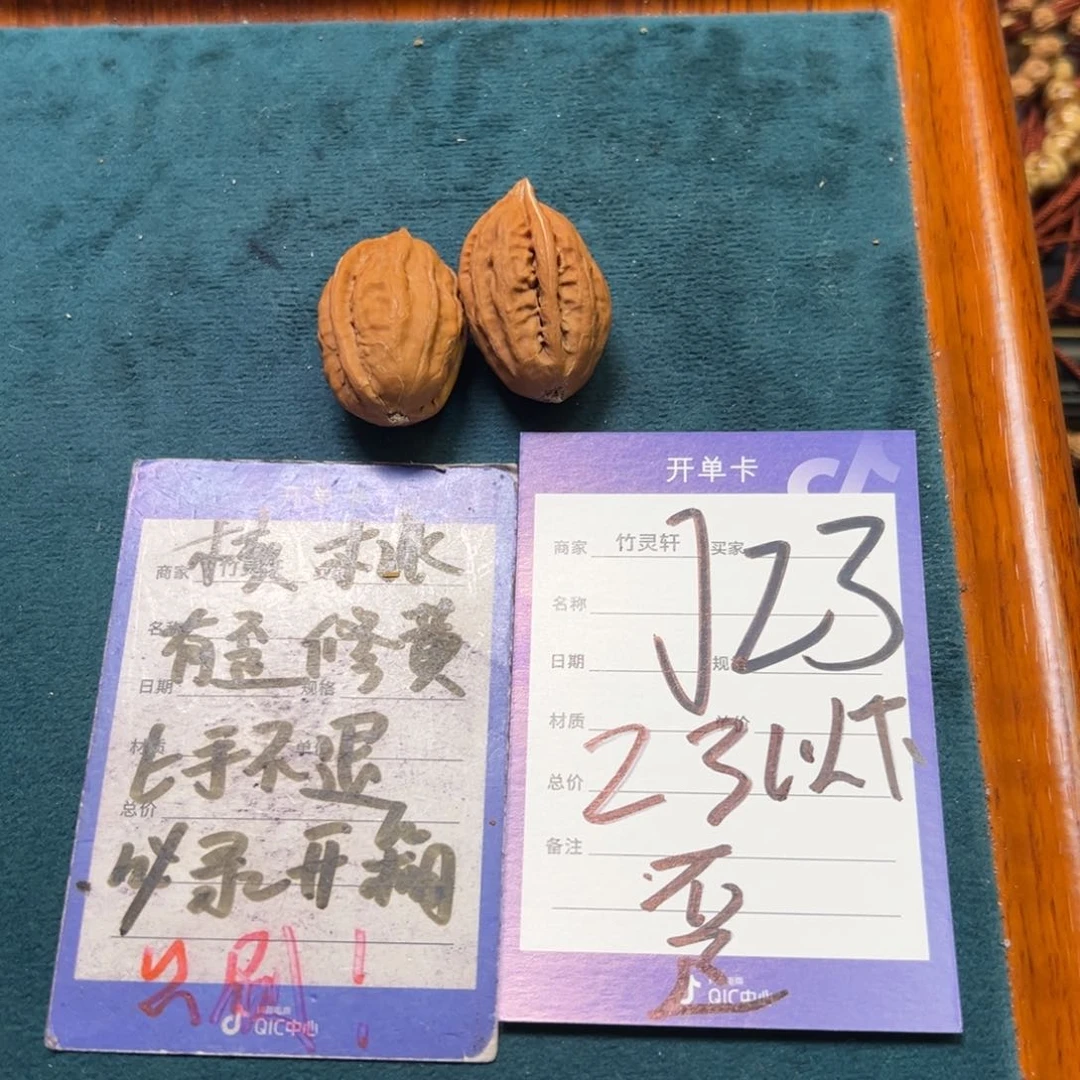 开单卡
商家
核桃
名称
有歪修黄
日期 规格
材质 单价
上手不退
总价
必录开箱
只刷!
QIC中心
开单卡
商家 竹灵轩 买家
J23
名称
日期 规格
材质 单价
23以下
总价
备注
歪
QIC中心